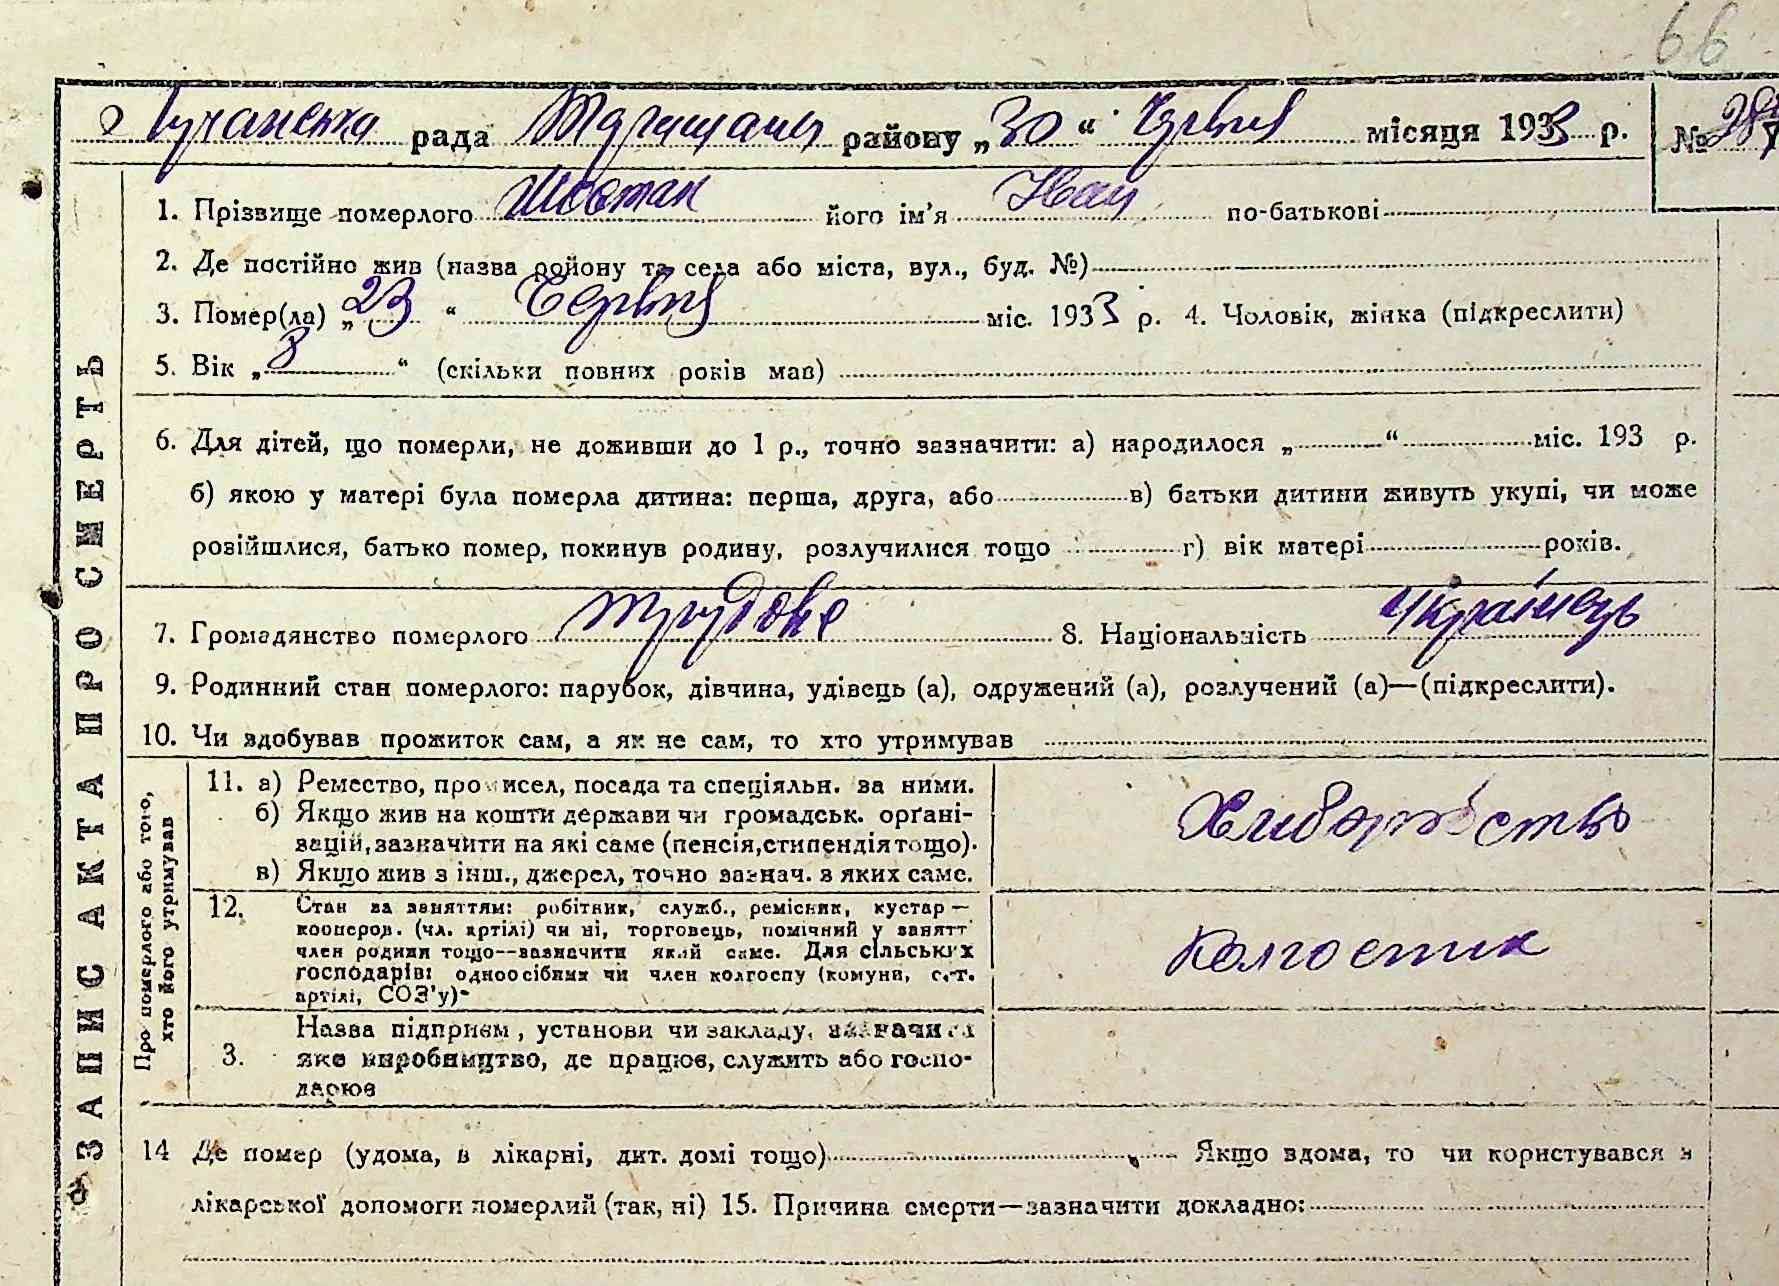 66
Лучанська рада Таращань району „30“ Червня місяця 1933 р. №
1. Прізвище померлого Шостак його ім'я Іван по-батькові
2. Де постійно жив (назва району та села або міста, вул., буд. №)
3. Помер(ла) „23“ Червня міс. 1933 р. 4. Чоловік, жінка (підкреслити)
5. Вік „8“ (скільки повних років мав)
6. Для дітей, що померли, не доживши до 1 р., точно зазначити: а) народилося „ “ міс. 193 р.
б) якою у матері була померла дитина: перша, друга, або в) батьки дитини живуть укупі, чи може
розійшлися, батько помер, покинув родину, розлучилися тощо г) вік матері років.
7. Громадянство померлого трудове 8. Національність Українець
9. Родинний стан померлого: парубок, дівчина, удівець (а), одружений (а), розлучений (а)—(підкреслити).
10. Чи здобував прожиток сам, а як не сам, то хто утримував
ЗАПИС АКТА ПРО СМЕРТЬ
Про померлого або того,
хто його утримував
11. а) Ремество, промисел, посада та спеціяльн. за ними.
б) Якщо жив на кошти держави чи громадськ. орґані-
зацій, зазначити на які саме (пенсія, стипендія тощо).
в) Якщо жив з інш., джерел, точно зазнач. з яких саме.
Хліборобство
12. Стан за заняттям: робітник, служб., ремісник, кустар—
кооперов. (чл. артілі) чи ні, торговець, помічний у занятт
член родини тощо—зазначити який саме. Для сільських
господарів: одноосібник чи член колгоспу (комуни, с.-г.
артілі, СОЗ'у)-
Колгоспник
3. Назва підприєм, установи чи закладу, зазначити
яке виробництво, де працює, служить або госпо-
дарює
14 Де помер (удома, в лікарні, дит. домі тощо) Якщо вдома, то чи користувався з
лікарської допомоги померлий (так, ні) 15. Причина смерти—зазначити докладно: